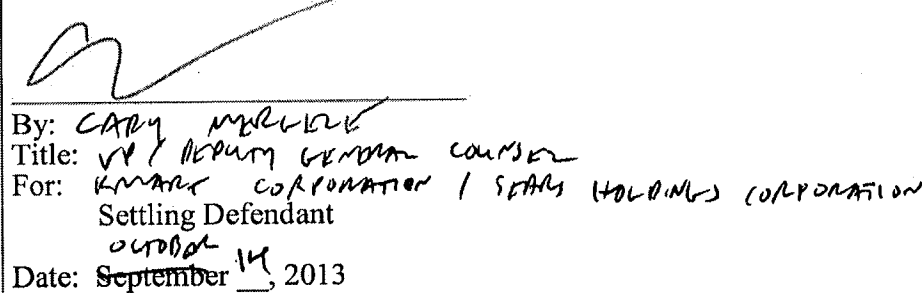 By: CARY MERCER
Title: VP / DEPUTY GENERAL COUNSEL
For: KMART CORPORATION / SEARS HOLDINGS CORPORATION
Settling Defendant
OCTOBER
Date: September 14, 2013